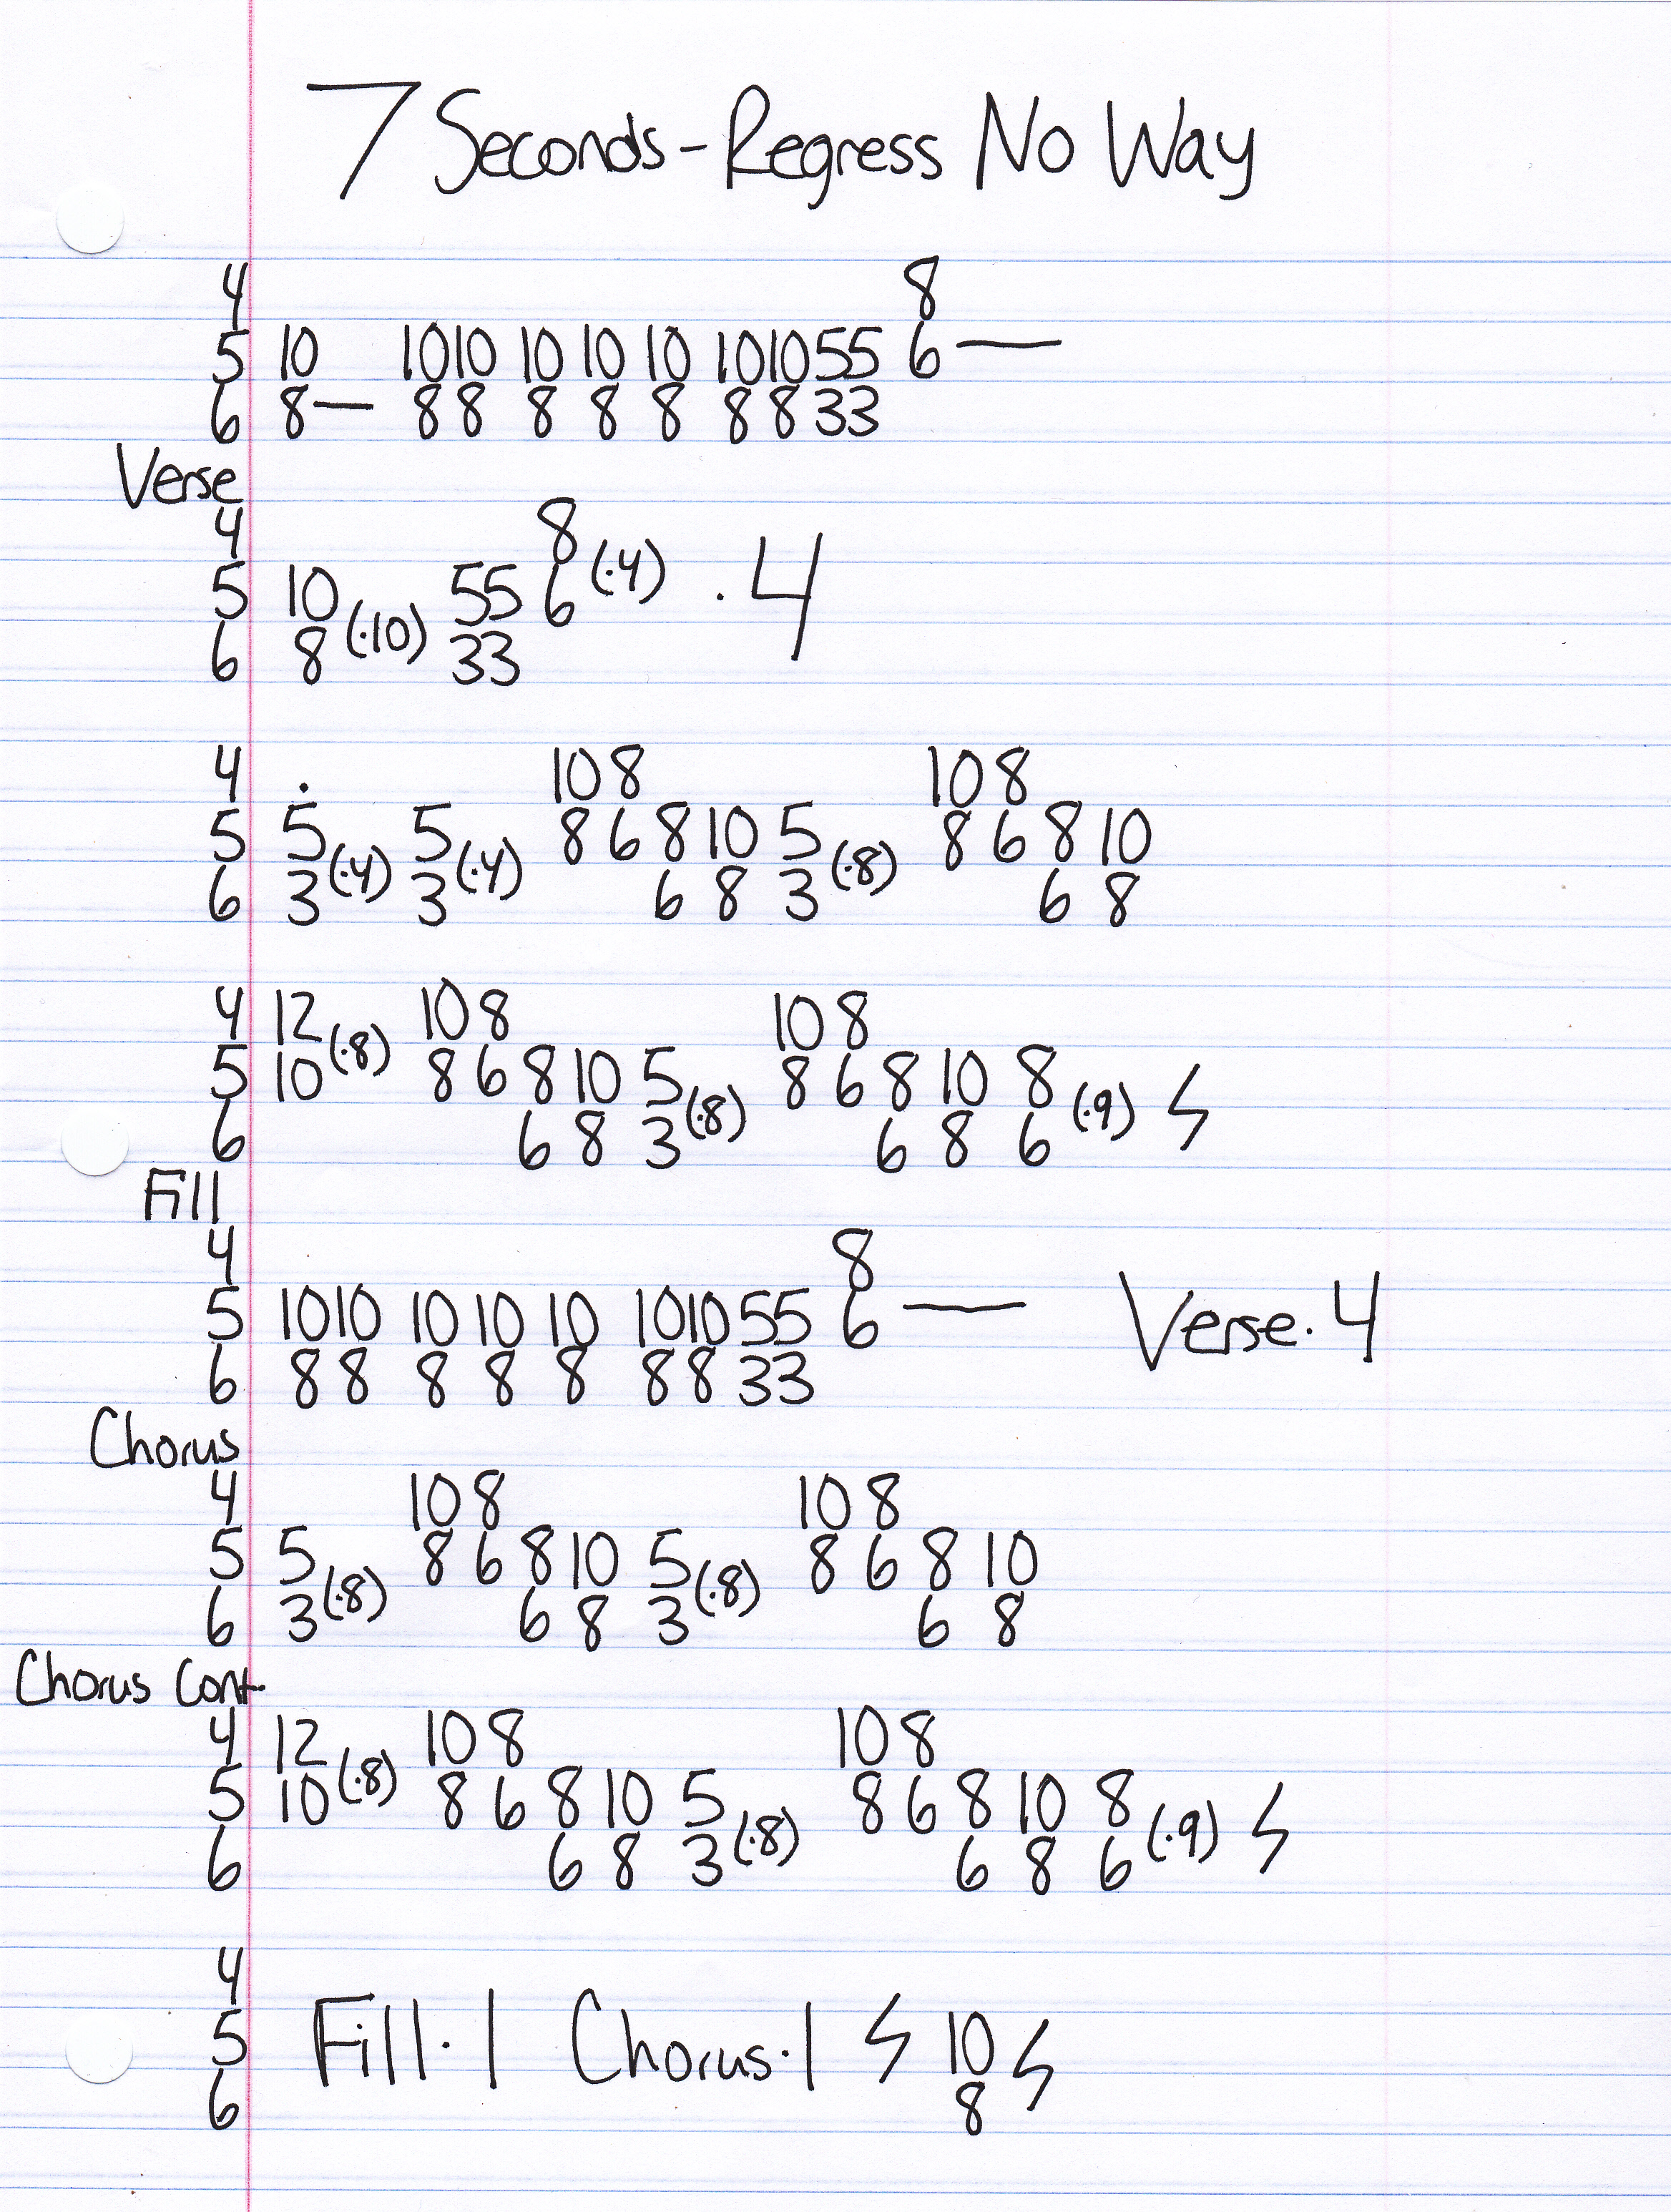 7 Seconds - Regress No Way
4 8
5 10 10 10 10 10 10 10 10 5 5 6 —
6 8 — 8 8 8 8 8 8 8 3 3
Verse
4 8
5 10 55 6 (·4) · 4
6 8 (·10) 33
4 · 10 8 10 8
5 5 5 8 6 8 10 5 8 6 8 10
6 3 (·4) 3 (·4) 6 8 3 (·8) 6 8
4 12 10 8 10 8
5 10 (·8) 8 6 8 10 5 8 6 8 10 8
6 6 8 3 (·8) 6 8 6 (·9) ϟ
Fill
4 8
5 10 10 10 10 10 10 10 5 5 6 — Verse · 4
6 8 8 8 8 8 8 8 3 3
Chorus
4 10 8 10 8
5 5 8 6 8 10 5 8 6 8 10
6 3 (·8) 6 8 3 (·8) 6 8
Chorus Cont.
4 12 10 8 10 8
5 10 (·8) 8 6 8 10 5 8 6 8 10 8
6 6 8 3 (·8) 6 8 6 (·9) ϟ
4
5 Fill · 1 Chorus · 1 ϟ 10 ϟ
6 8